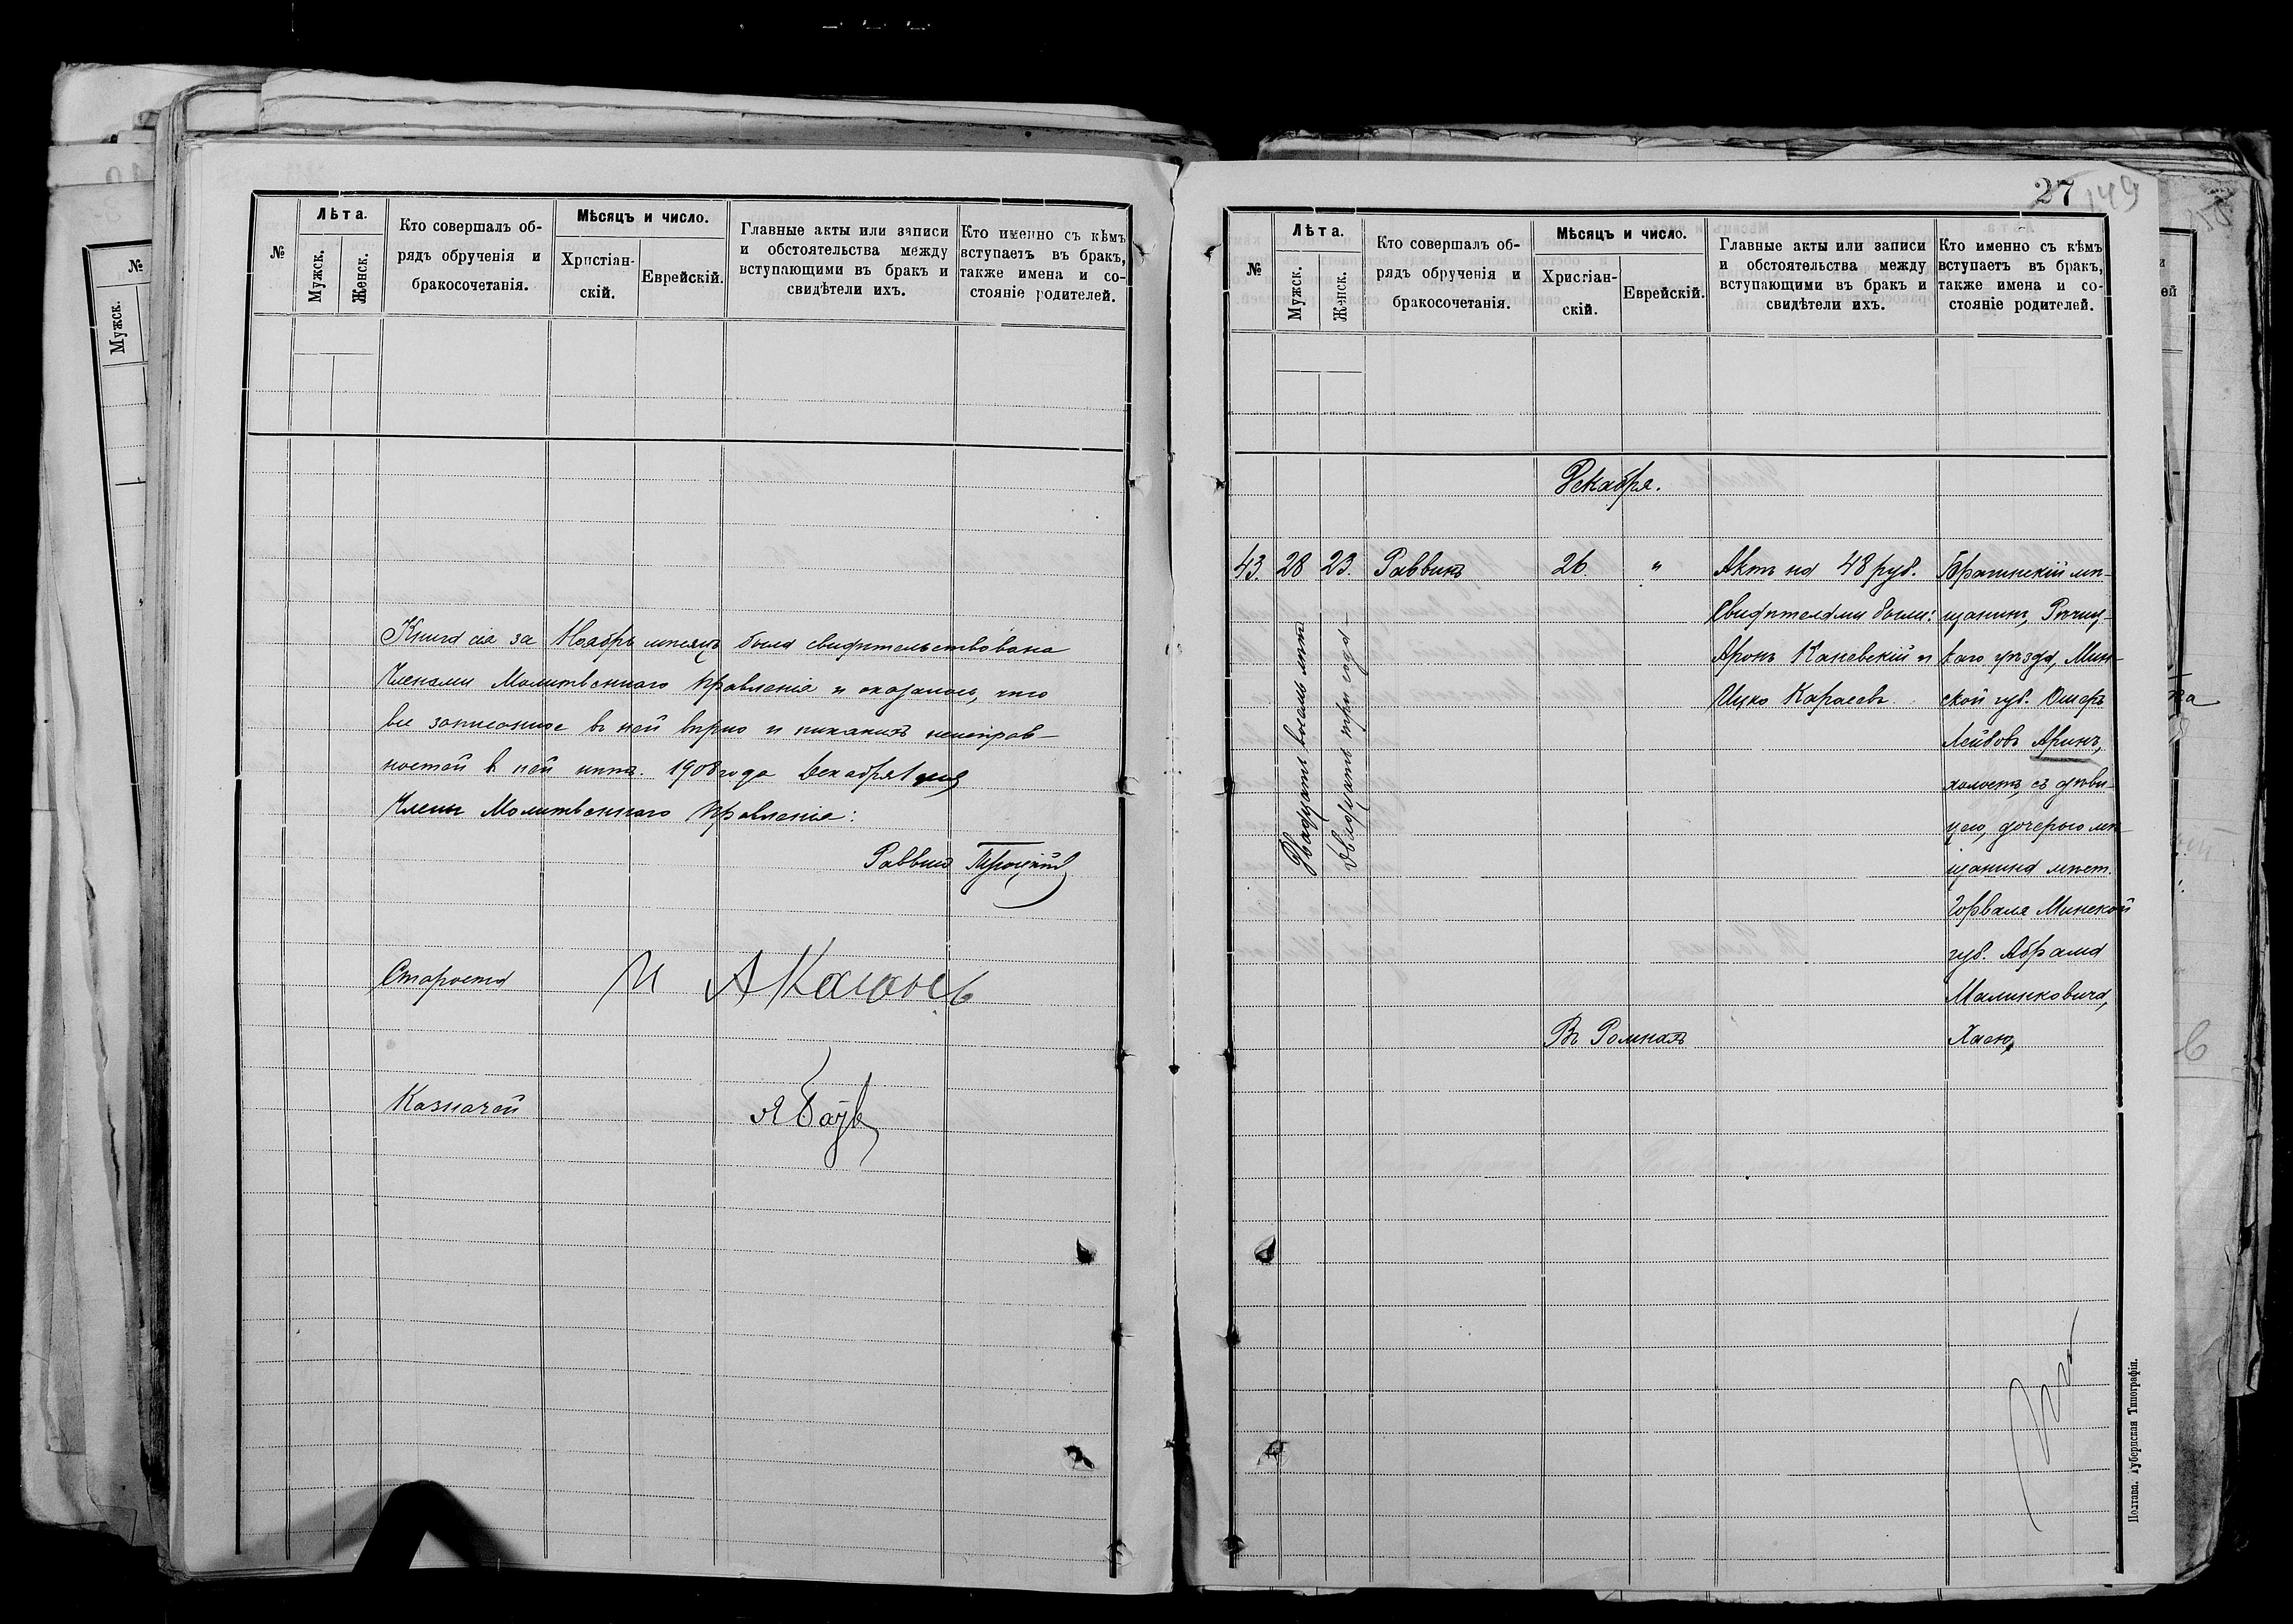 №
Лѣта.
Мужск.
Женск.
Кто совершалъ об-
рядъ обрученія и
бракосочетанія.
Мѣсяцъ и число.
Христіан-
скій.
Еврейскій.
Главные акты или записи
и обстоятельства между
вступающими въ бракъ и
свидѣтели ихъ.
Кто именно съ кѣмъ
вступаетъ въ бракъ,
также имена и со-
стояніе родителей.
Книга сія за Ноябрь мѣсяцъ была свидѣтельствована
Членами Молитвеннаго Правленія и оказалось, что
все записанное въ ней вѣрно и никакихъ неисправ-
ностей въ ней нѣтъ. 1908 года Декабря 1 дня
Члены Молитвеннаго Правленія:
Раввинъ Троцкій
Староста И А Кагановъ
Казначей
№
Мужск.
27
149
№
Лѣта.
Мужск.
Женск.
Кто совершалъ об-
рядъ обрученія и
бракосочетанія.
Мѣсяцъ и число.
Христіан-
скій.
Еврейскій.
Главные акты или записи
и обстоятельства между
вступающими въ бракъ и
свидѣтели ихъ.
Кто именно съ кѣмъ
вступаетъ въ бракъ,
также имена и со-
стояніе родителей.
Декабря.
43. 28 23. Раввинъ 26. " Актъ на 48 руб.
Двадцать восемь лѣтъ
Двадцать три года
Свидѣтелями были:
Аронъ Каневскій и
Ицко Караевъ.
Брагинскій мѣ-
щанинъ, Рѣчиц-
каго уѣзда, Мин-
ской губ. Ошеръ
Лейбовъ Аринъ,
холостъ, съ дѣви-
цею, дочерью мѣ-
щанина мѣст.
Горваля Минской
губ. Абрама
Малинковича,
Хаею,
Въ Ромнахъ
Полтава. Губернская Типографія.